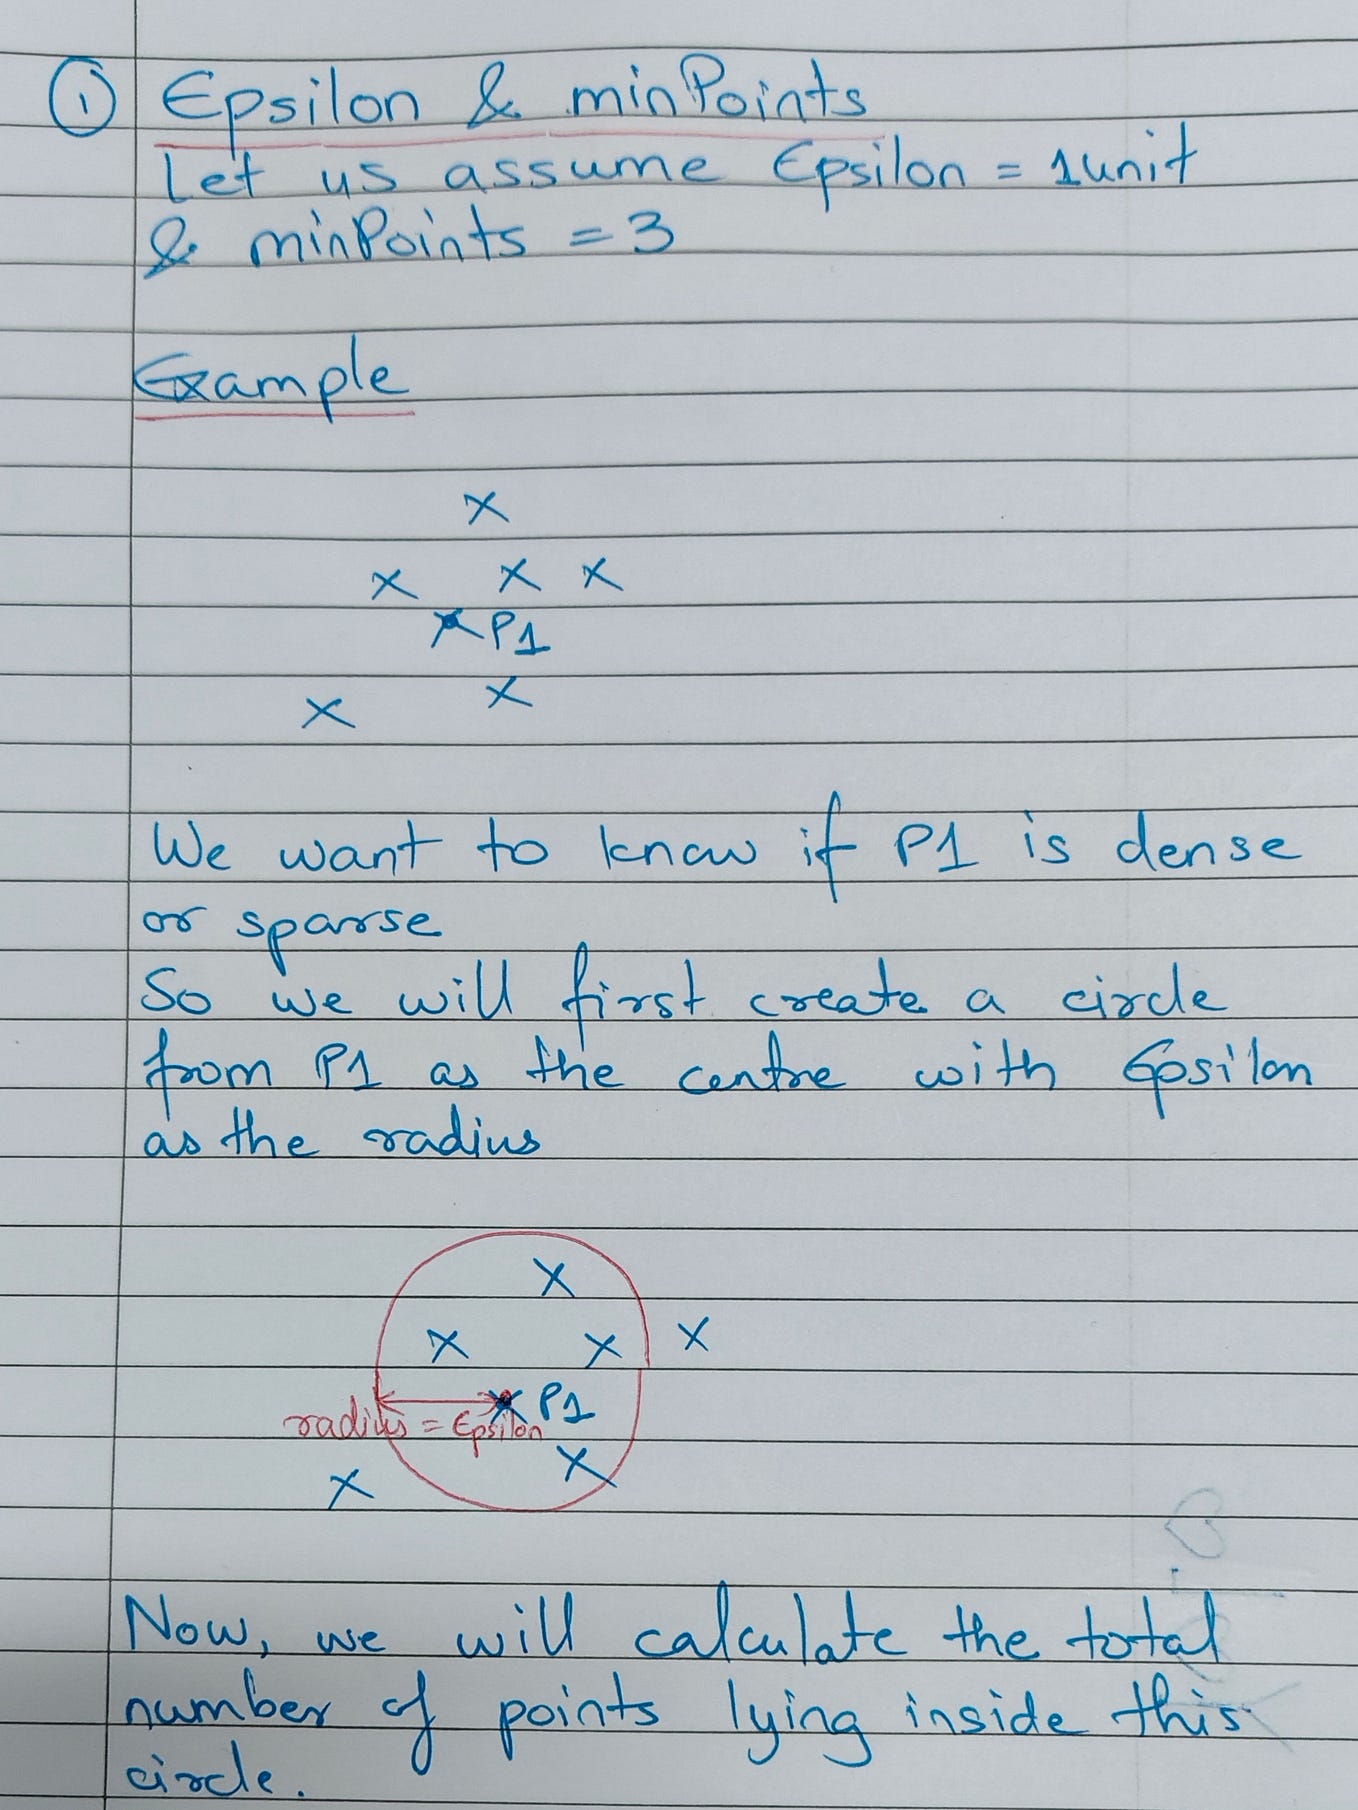 ① Epsilon & minPoints
Let us assume Epsilon = 1unit
& minPoints = 3
Example
x
x x x
x P1
x x
We want to know if P1 is dense
or sparse
So we will first create a circle
from P1 as the centre with Epsilon
as the radius
x
x x x
x P1
radius = Epsilon
x
x
Now, we will calculate the total
number of points lying inside this
circle.